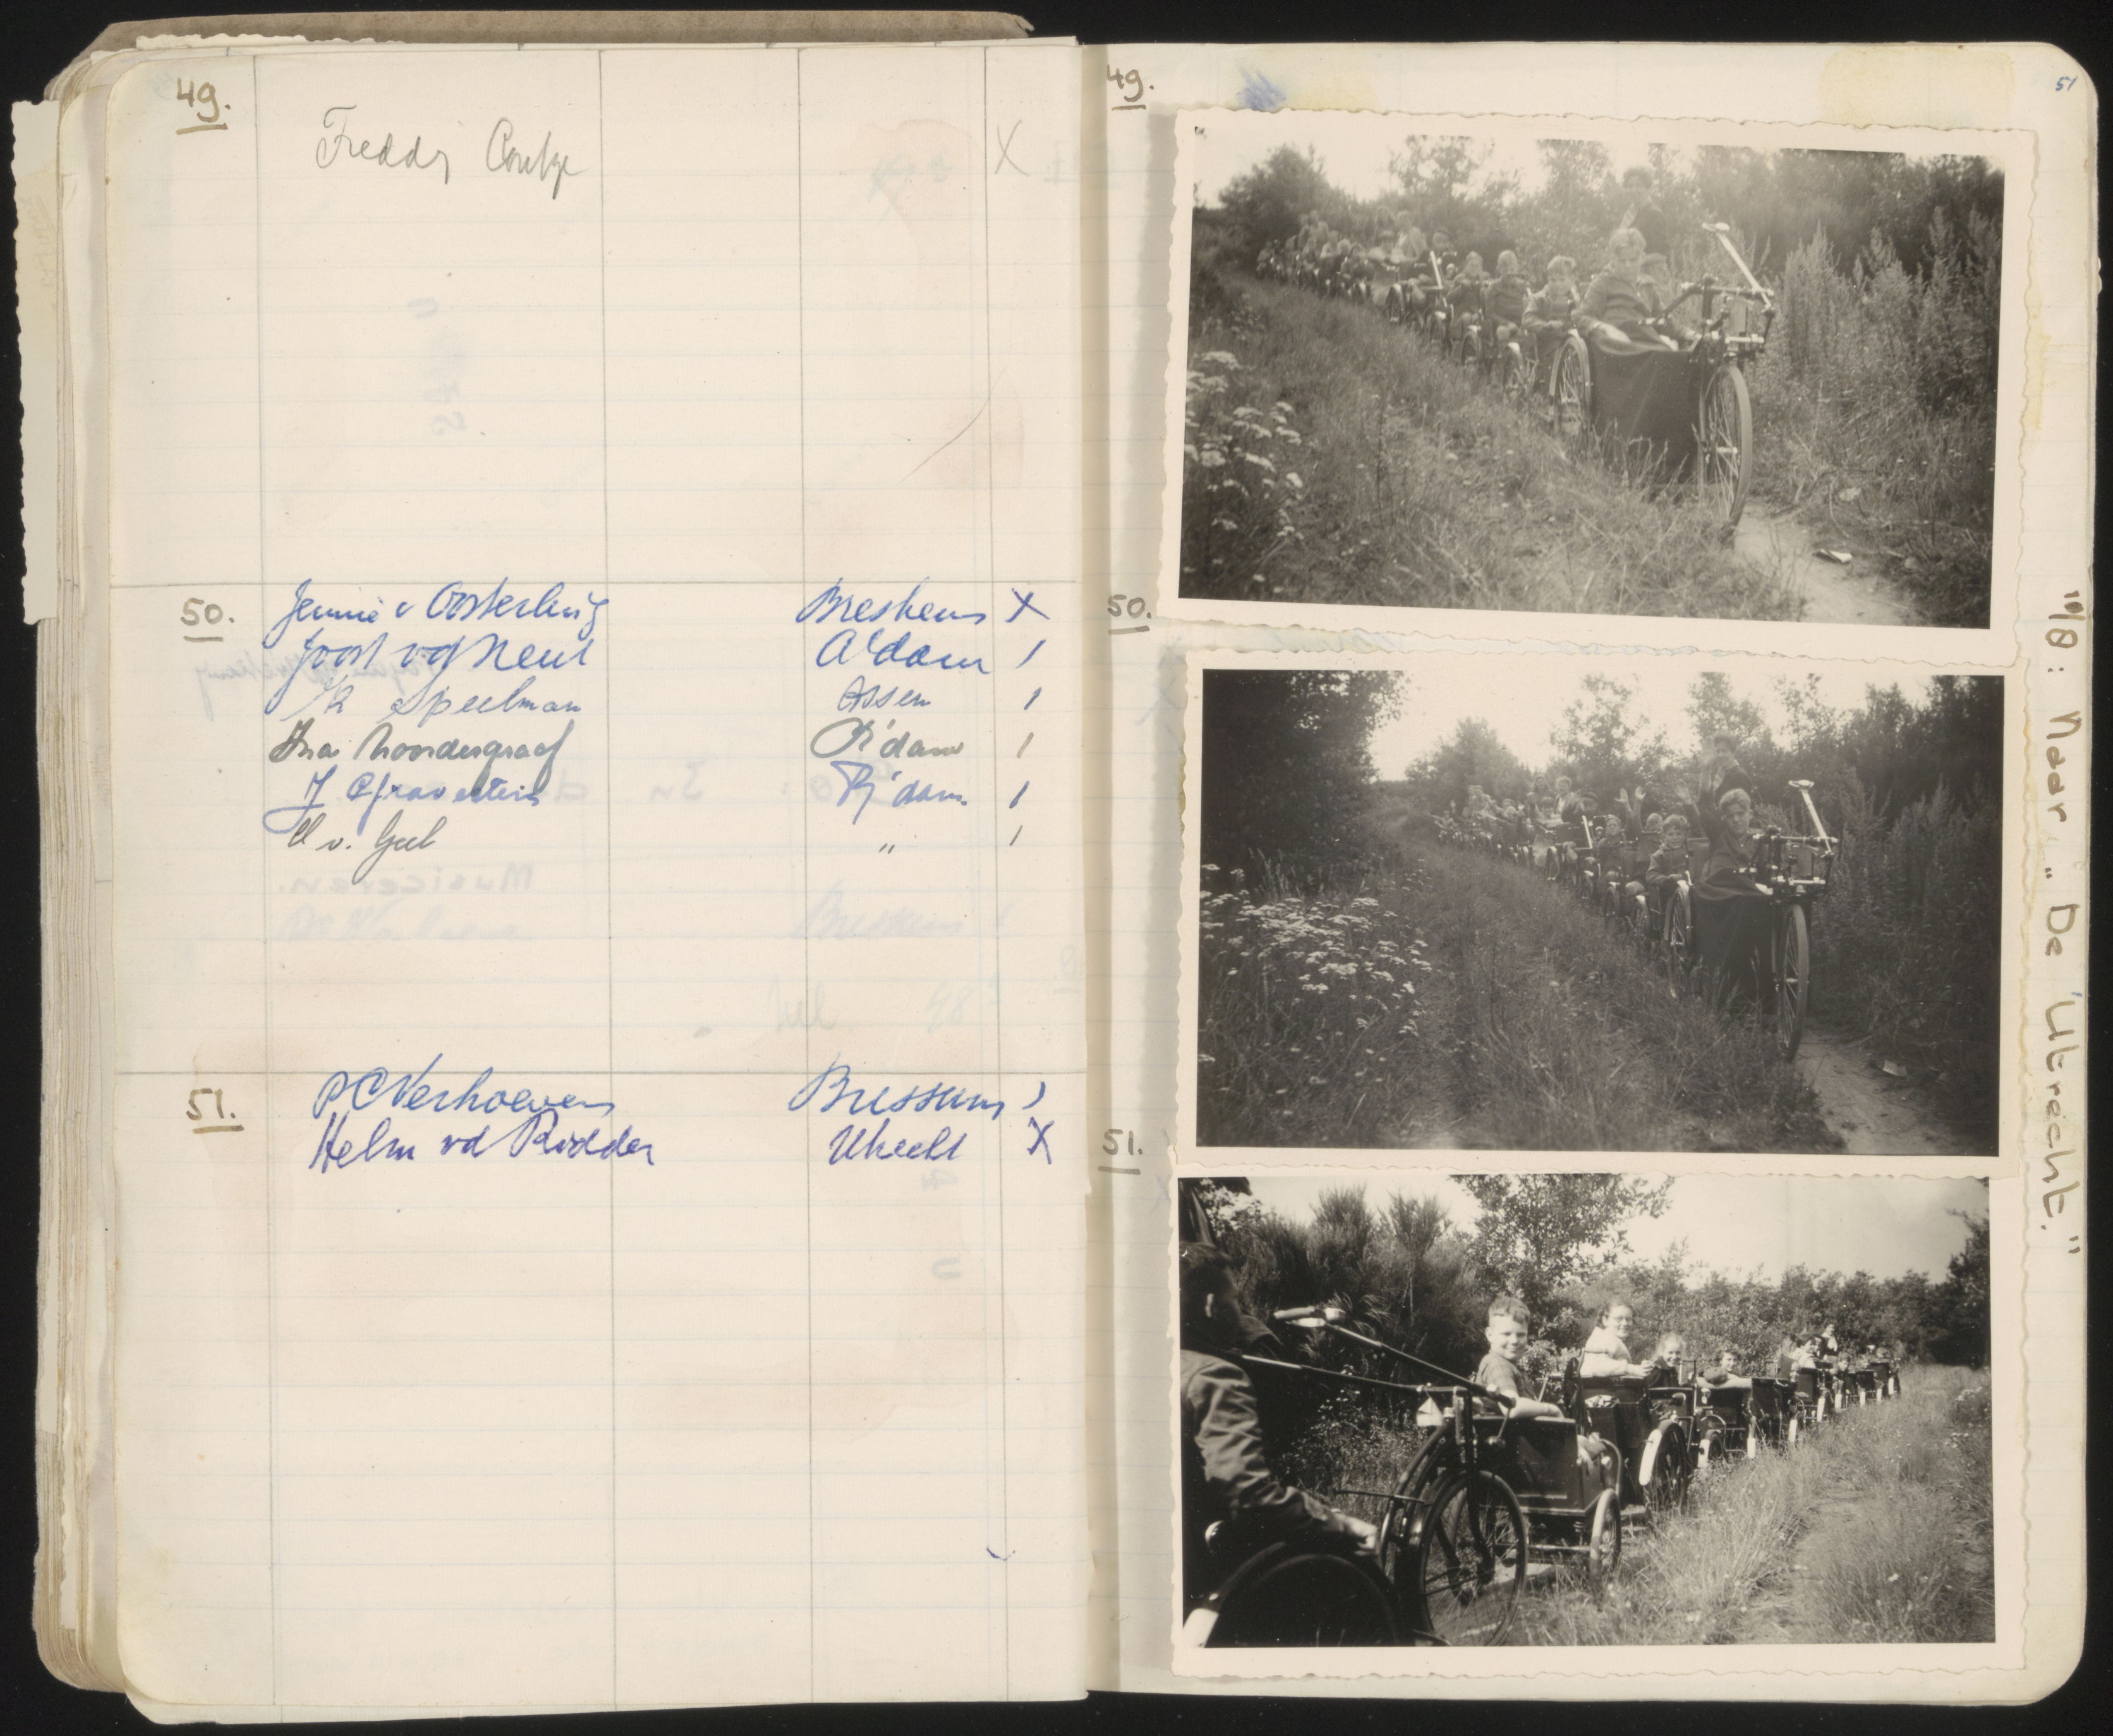 49.
Freddy
X
50.
Jennie v Oosterbrug Breskens X
Joost vd Neut A'dam 1
Speelman Assen 1
Ina Noordergraaf R'dam 1
J Gravestein R'dam. 1
v. Geel " 1
51.
P C Verhoeven Bussum 1
Helm vd Ridder Utrecht X
49.
51
50.
51.
10/8: Naar " De Utrecht."